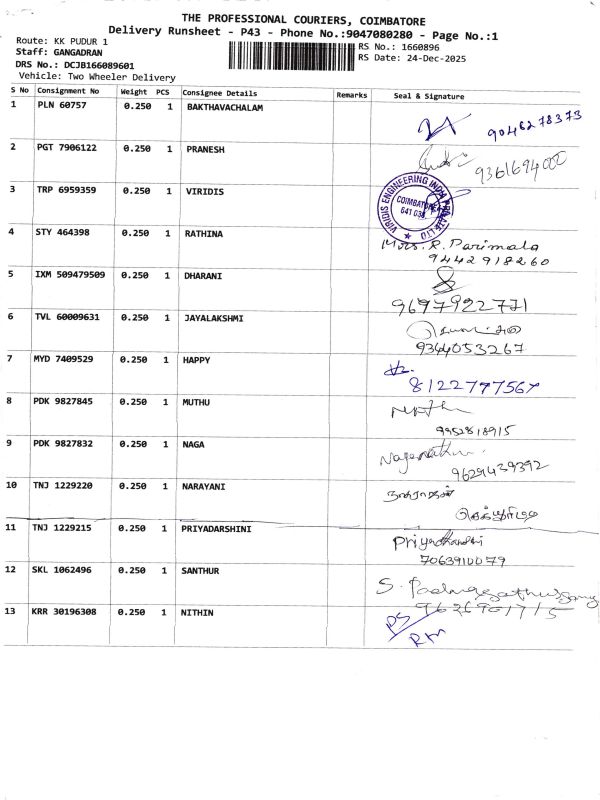 THE PROFESSIONAL COURIERS, COIMBATORE
Delivery Runsheet - P43 - Phone No.:9047080280 - Page No.:1
Route: KK PUDUR 1
RS No.: 1660896
Staff: GANGADRAN
RS Date: 24-Dec-2025
DRS No.: DCJB166089601
Vehicle: Two Wheeler Delivery
S No Consignment No Weight PCS Consignee Details Remarks Seal & Signature
1 PLN 60757 0.250 1 BAKTHAVACHALAM
9046278373
2 PGT 7906122 0.250 1 PRANESH
9361694000
3 TRP 6959359 0.250 1 VIRIDIS
VIRIDIS ENGINEERING INDIA PRIVATE LTD
COIMBATORE
641 038
4 STY 464398 0.250 1 RATHINA
Mrs. R. Parimala
9442918260
5 IXM 509479509 0.250 1 DHARANI
9697922771
6 TVL 60009631 0.250 1 JAYALAKSHMI
9344053267
7 MYD 7409529 0.250 1 HAPPY
8122777567
8 PDK 9827845 0.250 1 MUTHU
9952818915
9 PDK 9827832 0.250 1 NAGA
9629439392
10 TNJ 1229220 0.250 1 NARAYANI
11 TNJ 1229215 0.250 1 PRIYADARSHINI
Priyadharshini
7063910079
12 SKL 1062496 0.250 1 SANTHUR
S.
13 KRR 30196308 0.250 1 NITHIN
PS
RM